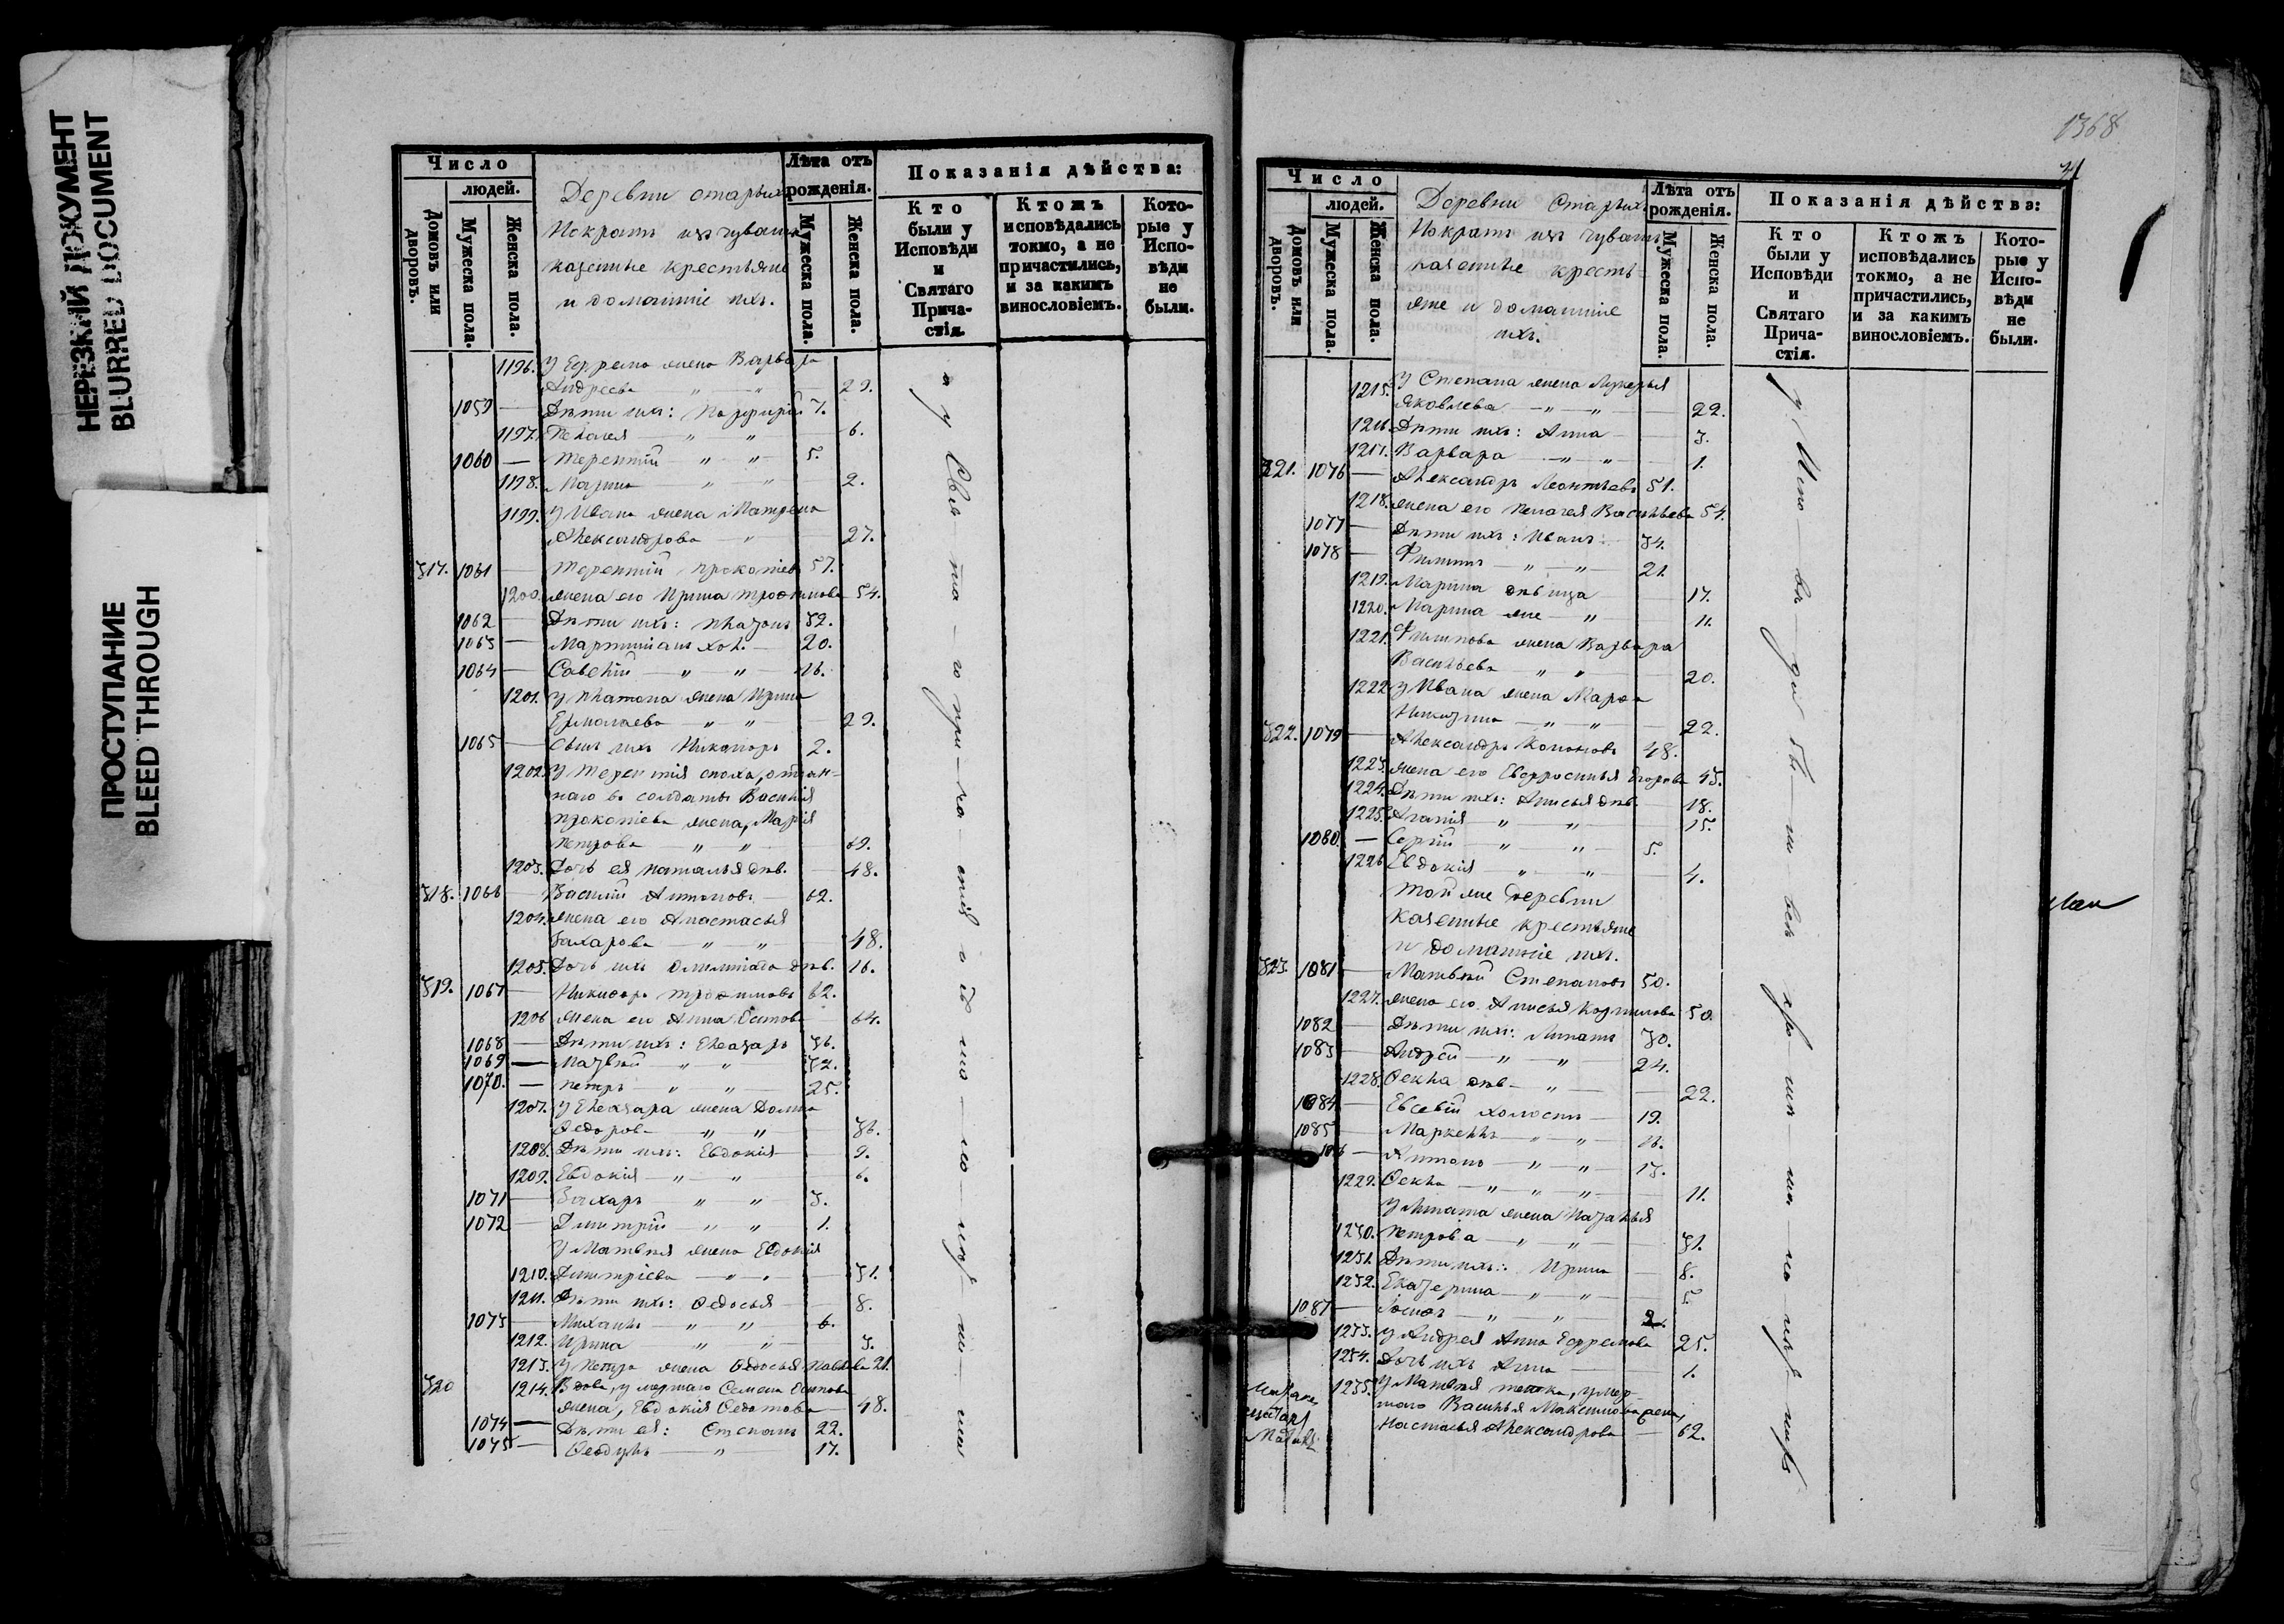 НЕРЕЗКИЙ ДОКУМЕНТ
BLURRED DOCUMENT
ПРОСТУПАНИЕ
BLEED THROUGH
Число
людей.
Домовъ или дворовъ.
Мужеска пола.
Женска пола.
Деревни старыхъ
Нократъ изъ чувашъ
казенные крестьяне
и домашніе ихъ.
Лѣта отъ рожденія.
Мужеска пола.
Женска пола.
Показанія дѣйства:
Кто были у Исповѣди и Святаго Прича-стія.
Ктожъ исповѣдались токмо, а не причастились, и за какимъ винословіемъ.
Кото-рые у Испо-вѣди не были.
1196. У Ефрема жена Варвара
Андреева " " 29.
1059 Дѣти ихъ: Порфирій 7.
1197. Пелагея " " 6.
1060 Терентій " " 5.
1198. Марина " " 2.
1199. У Ивана жена Матрена
Александрова " 27.
317. 1061 Терентій Прокопіев 57.
1200. жена его Ирина Трофимова 54.
1062 Дѣти ихъ: Платонъ 32.
1063 Мартиніанъ хол. 20.
1064 Савелій " " 16.
1201. У Платона жена Ирина
Ермолаева " " 29.
1065 Сынъ ихъ Никаноръ 2.
1202. У Терентія сноха, отдан-
наго въ солдаты Василія
Прокопіева жена, Марія
Петрова " " 69.
1203. Дочь ея Наталья дѣв. 48.
318. 1066 Василій Антоновъ 62.
1204. жена его Анастасья
Захарова " " 48.
1205. Дочь ихъ Олимпіада дѣв. 16.
319. 1067 Никифоръ Трофимовъ 62.
1206 жена его Анна Осипова 64.
1068 Дѣти ихъ: Елеазаръ 36.
1069 Матвѣй " " 32.
1070. Петръ " " 25.
1207. У Елеазара жена Домна
Федорова " " 36.
1208. Дѣти ихъ: Евдокія 9.
1209. Евдокія " " 6.
1071 Захаръ " " 3.
1072 Димитрій " " 1.
У Матвѣя жена Евдокія
1210. Димитріева " " 31.
1211. Дѣти ихъ: Федосья 8.
1073 Михаилъ " " 6.
1212. Ирина " " 3.
1213. У Петра жена Федосья Павлова 21.
320 1214. Вдова, умершаго Семена Осипова
жена, Евдокія Федотова 48.
1074 Дѣти ея: Степанъ 22.
1075 Федулъ " 17.
1368
Число
людей.
Домовъ или дворовъ.
Мужеска пола.
Женска пола.
Деревни Старыхъ
Нократъ изъ чувашъ
казенные кресть-
яне и домашніе
ихъ.
Лѣта отъ рожденія.
Мужеска пола.
Женска пола.
Показанія дѣйства:
Кто были у Исповѣди и Святаго Прича-стія.
Ктожъ исповѣдались токмо, а не причастились, и за какимъ винословіемъ.
Кото-рые у Испо-вѣди не были.
1215. У Степана жена Лукерья
Яковлева " " 22.
1216. Дѣти ихъ: Анна 3.
1217. Варвара " " 1.
321. 1076 Александръ Леонтьевъ 51.
1218. жена его Пелагея Васильева 54.
1077 Дѣти ихъ: Иванъ 34.
1078 Филиппъ " " 21.
1219. Марина дѣвица 17.
1220. Марина же " 11.
1221. Филипова жена Варвара
Васильева " " 20.
1222 У Ивана жена Марфа
Никитина " " 22.
322. 1079 Александръ Кононовъ 48.
1223. жена его Евфросинья Егорова 43.
1224. Дѣти ихъ: Анисья дѣв. 18.
1225. Агапія " " 15.
1080. Сергій " " 5.
1226 Евдокія " " 4.
Той же деревни
казенные крестьяне
и домашніе ихъ.
323. 1081 Матвѣй Степановъ 50.
1227. жена его Анисья Корнилова 50.
1082 Дѣти ихъ: Липатъ 30.
1083 Андрей " " 24.
1228. Фекла дѣв. " 22.
1084 Евсевій холостъ 19.
1085 Маркеллъ " " 16.
1086 Антонъ " " 13.
1229. Фекла " " " 11.
У Липата жена Наталья
1230. Петрова " " 31.
1231. Дѣти ихъ: Ирина 8.
1232. Екатерина " " 5.
1087 Іосифъ " " 2.
1233. У Андрея Анна Ефремова 25.
1234. Дочь ихъ Анна 1.
1235. У Матвѣя тетка, умер-
шаго Василья Максимова жена,
Настасья Александрова 62.